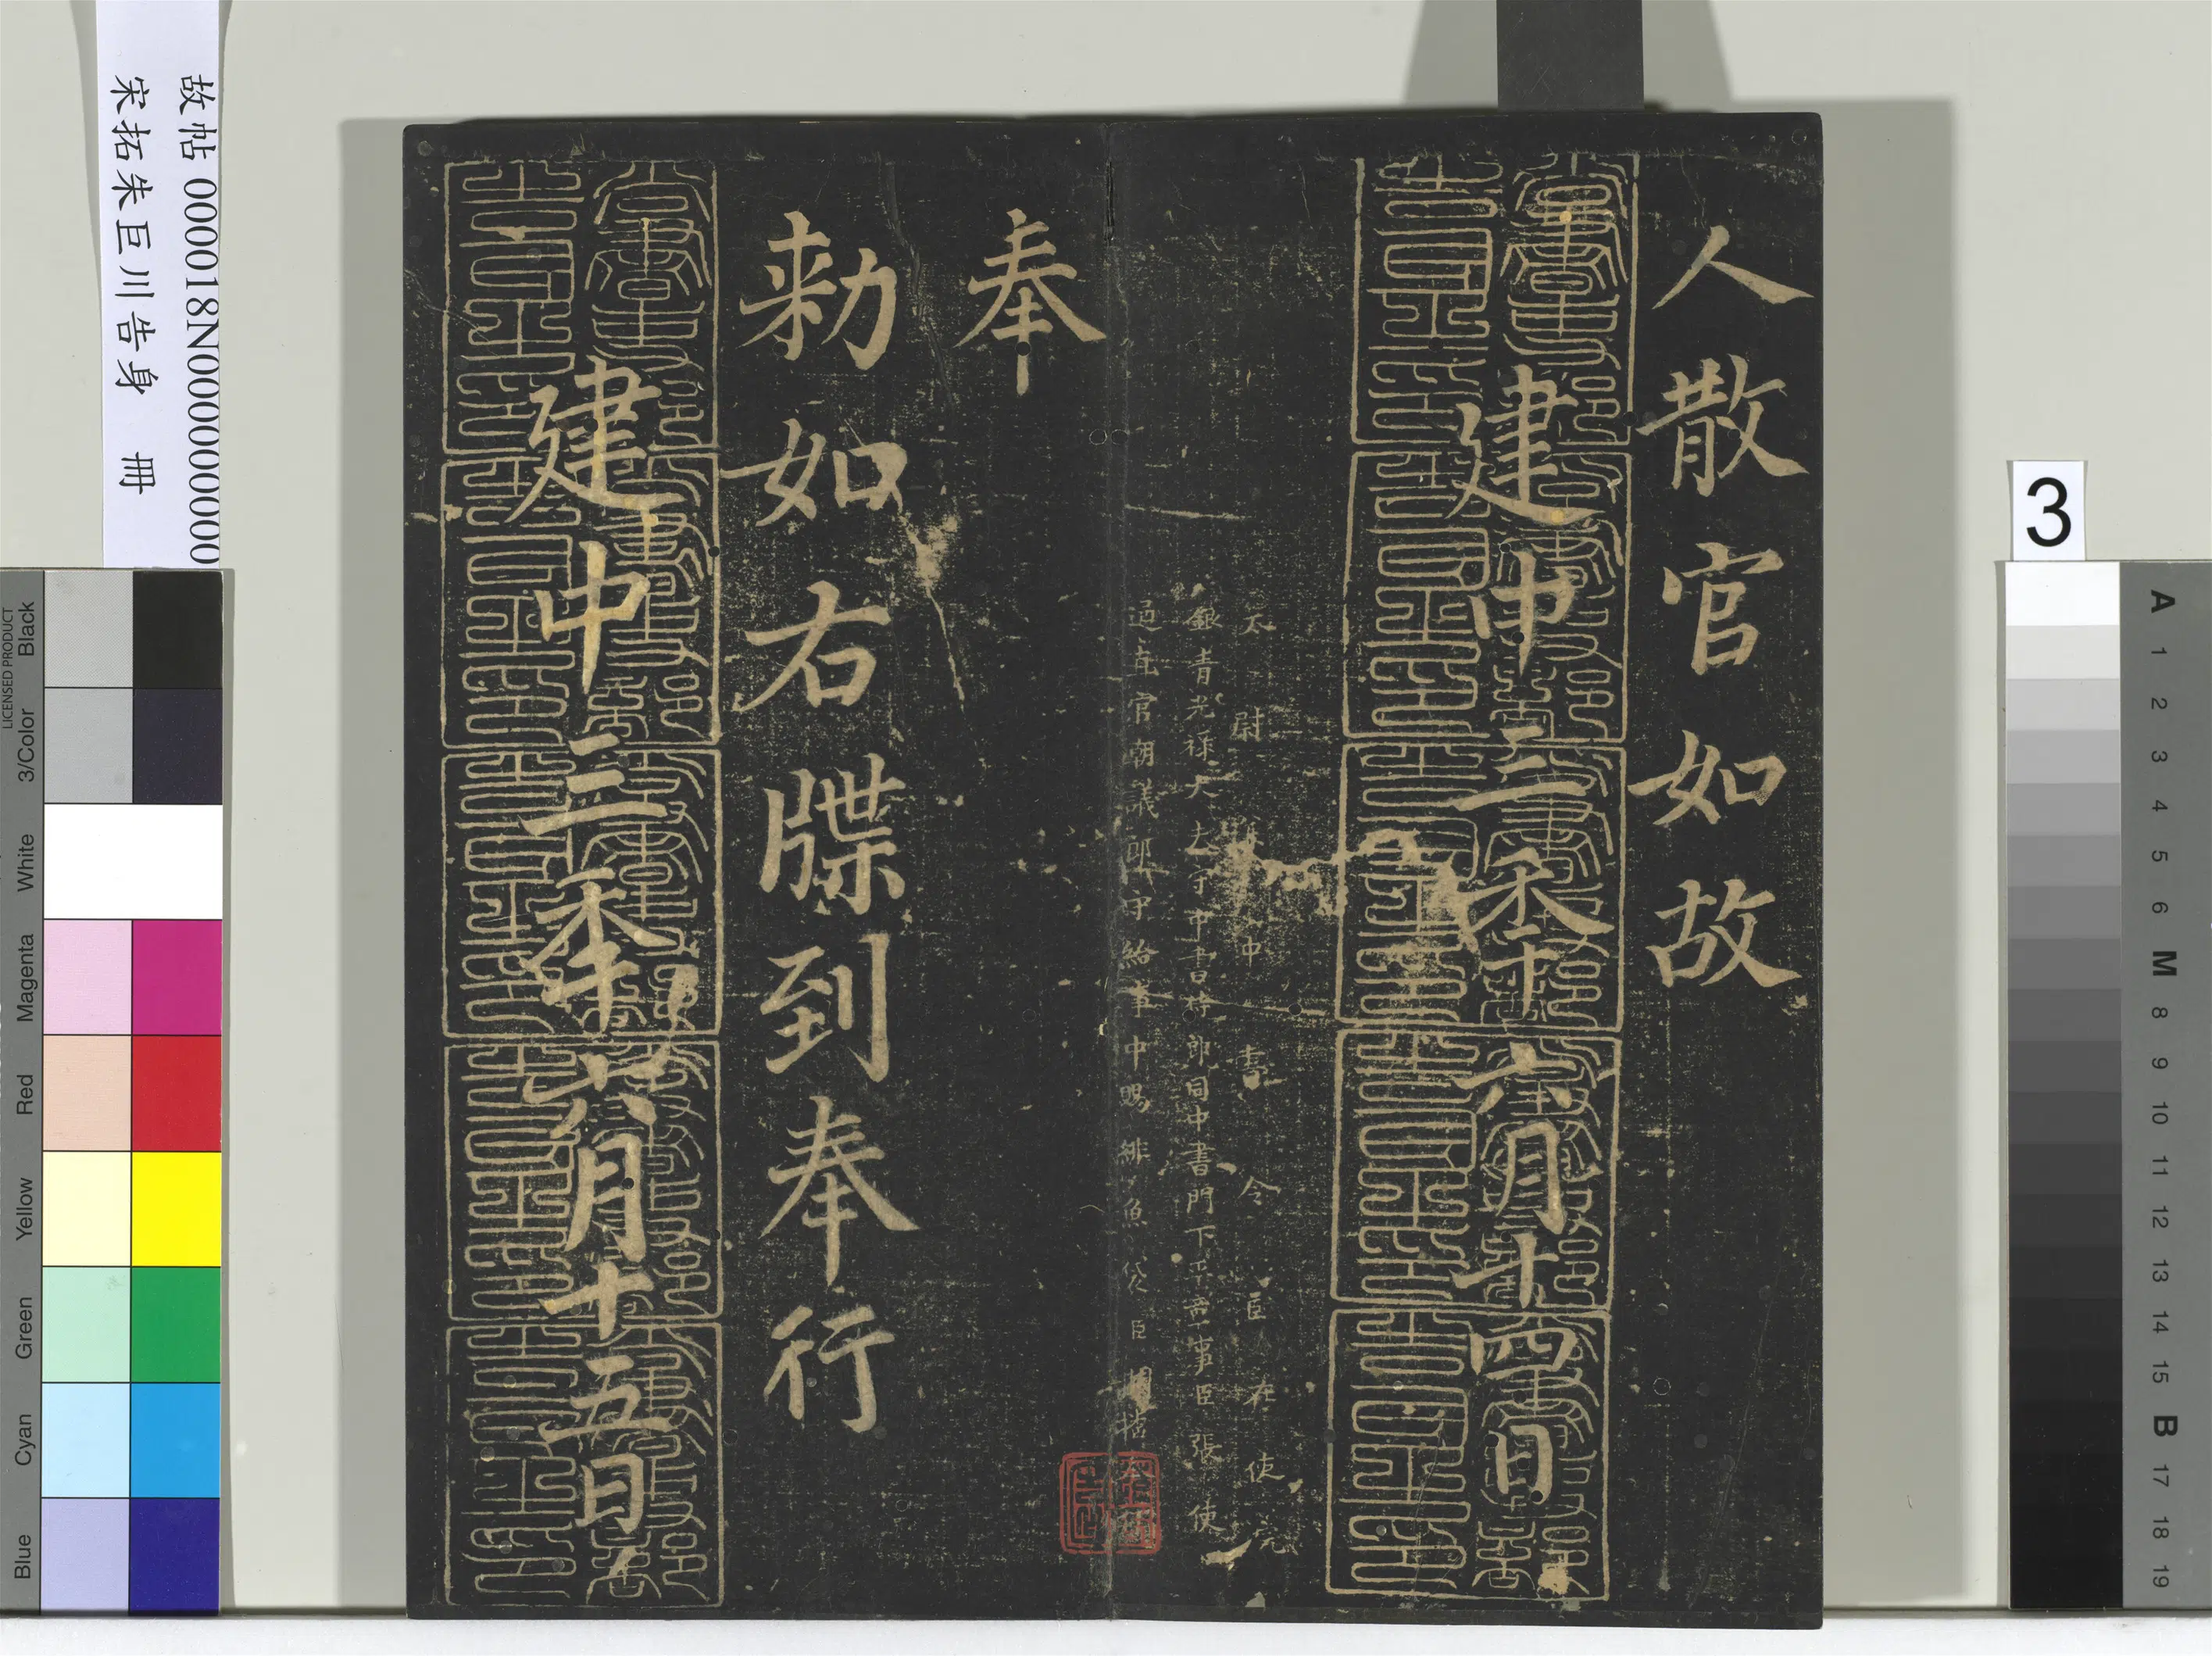 人散官如故
建中三年六月十四日
太尉中書令臣在使院
銀青光祿大夫守中書侍郎同中書門下平章事臣張使
朝議郎守給事中賜緋魚袋臣
奉
勅如右牒到奉行
建中三年六月十五日
故帖 000018N000000000
宋拓朱巨川告身 冊
3
LICENSED PRODUCT
Black
3/Color
White
Magenta
Red
Yellow
Green
Cyan
Blue
A
1
2
3
4
5
6
M
8
9
10
11
12
13
14
15
B
17
18
19